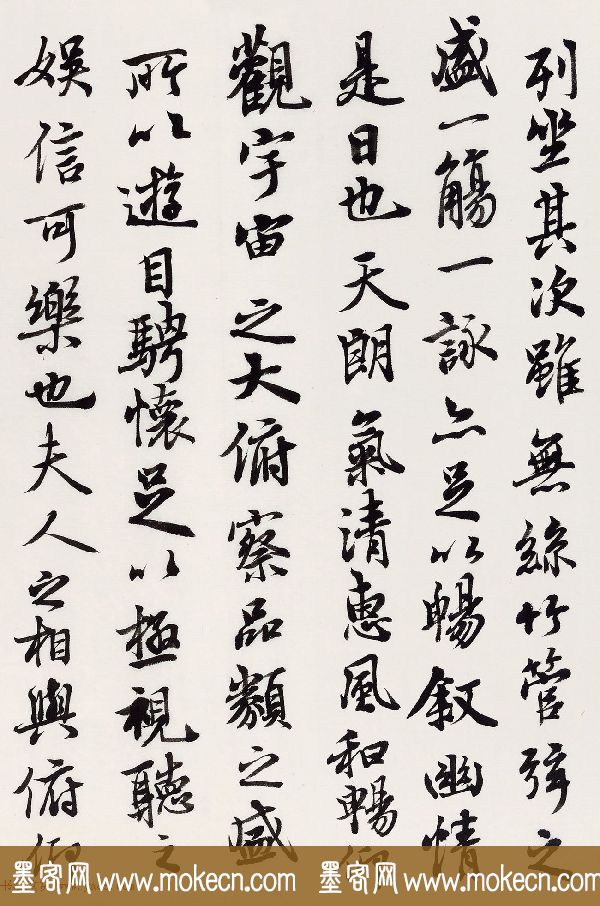 列坐其次雖無絲竹管弦之
盛一觴一詠亦足以暢叙幽情
是日也天朗氣清惠風和暢仰
觀宇宙之大俯察品類之盛
所以遊目騁懷足以極視聽之
娛信可樂也夫人之相與俯仰
墨客网 www.mokecn.com 墨客网 www.mokecn.com